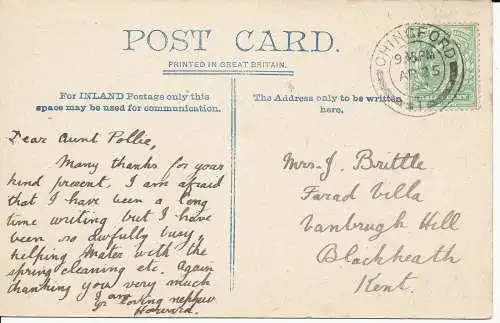 POST CARD.
PRINTED IN GREAT BRITAIN.
For INLAND Postage only this
space may be used for communication.
The Address only to be written
here.
CHINGFORD
9.45PM
AP 15
11
Dear Aunt Pollie,
Many thanks for your
kind present. I am afraid
that I have been a long
time writing but I have
been so awfully busy
helping Mater with the
spring cleaning etc. Again
thanking you very much
I am
Yr loving nephew
Howard.
Mrs J. Brittle
Farad Villa
Vanbrugh Hill
Blackheath
Kent.